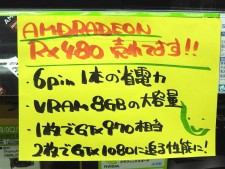 AMD RADEON
RX480 売れてます!!
・6pin 1本の省電力
・VRAM 8GBの大容量
・1枚でGTX970相当
2枚でGTX1080に迫る性能に!